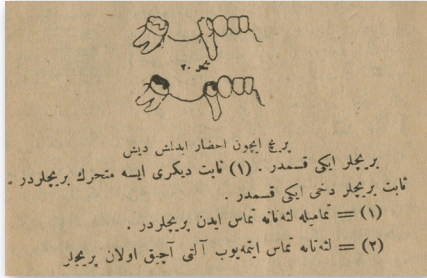 نمرو ٢٠
بریج ایچون احضار ایدلمش دیش
بریجلر ایکی قسمدر . (١) ثابت دیکری ایسه متحرك بریجلردر .
ثابت بریجلر دخی ایکی قسمدر .
(١) = تمامیله لثه‌نانه تماس ایدن بریجلردر .
(٢) = لثه‌نانه تماس ایتمه‌یوب آلتی آچیق اولان بریجلر